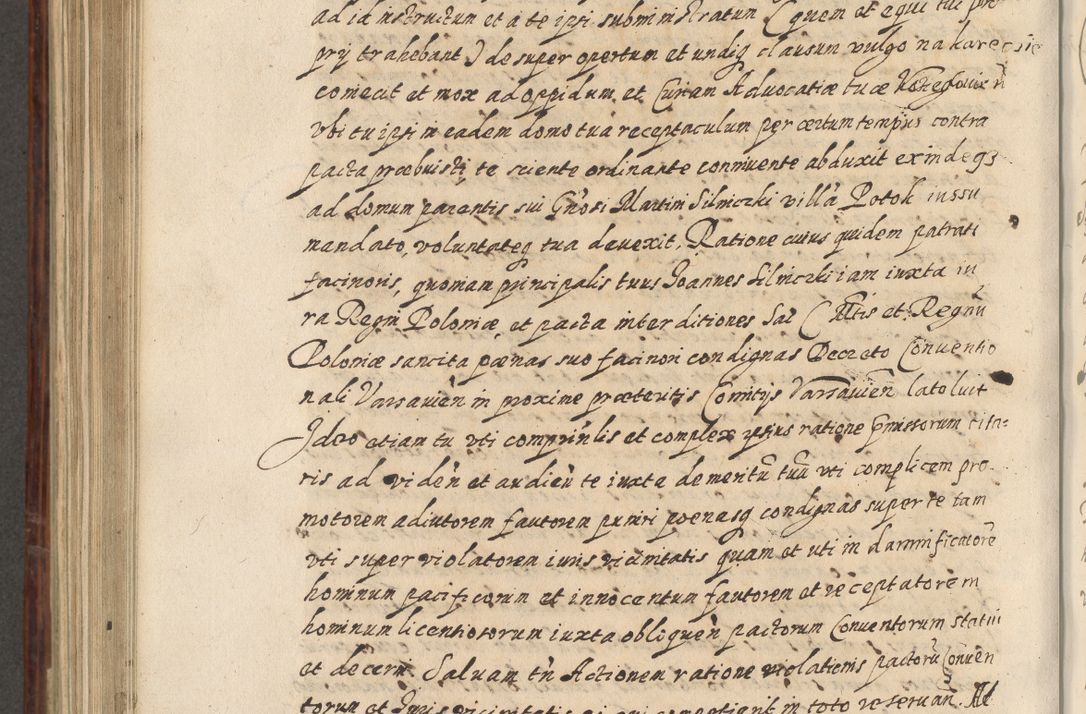 ad id instructum et a te ipsi subministratum (quem et equi tui pro
prij trahebant) de super opertum et undiq clausum vulgo na karecsie
coniecit et mox ad oppidum et Curiam Advocatiæ tuæ
vbi tu ipsi in eadem domo tua receptaculum per certum tempus contra
pacta præbuisti, te sciente ordinante connivente abduxit exindeq3
ad domum parentis sui Gnosi Martin Silniczki villã Potok iussu
mandato, voluntateq tua devexit. Ratione cuius quidem patrati
facinoris, quoniam principalis tuus Joannes Silniczki iam iuxta iu
ra Regni Poloniæ, et pacta inter ditiones Sac C Mtis et Regnũ
Poloniæ sancita pænas suo facinori condignas Decreto Conventio
nali Varsavien̄ in proxime præteritis Comitijs Varsavien̄ lato luit
Ideo etiam tu vti comprin̄lis et complex ipsius ratione præmissorum cita=
ris ad viden̄ et audien̄ te iuxta demeritũ tuũ vti complicem pro
motorem adiutorem fautorem puniri poenasq condignas super te tam
vti super violatorem iuris vicinitatis quam et uti in damnificatorẽ
hominum pacificorum et innocentum fautorem et receptatorem
hominum licentiosorum iuxta obloquen̄ pactorum Conventorum statui
et decerni. Salvam tn̄ Actionem ratione violationis pactorũ Conven
torum et Iuris vicinitatis ei cui competient in toto reservan.